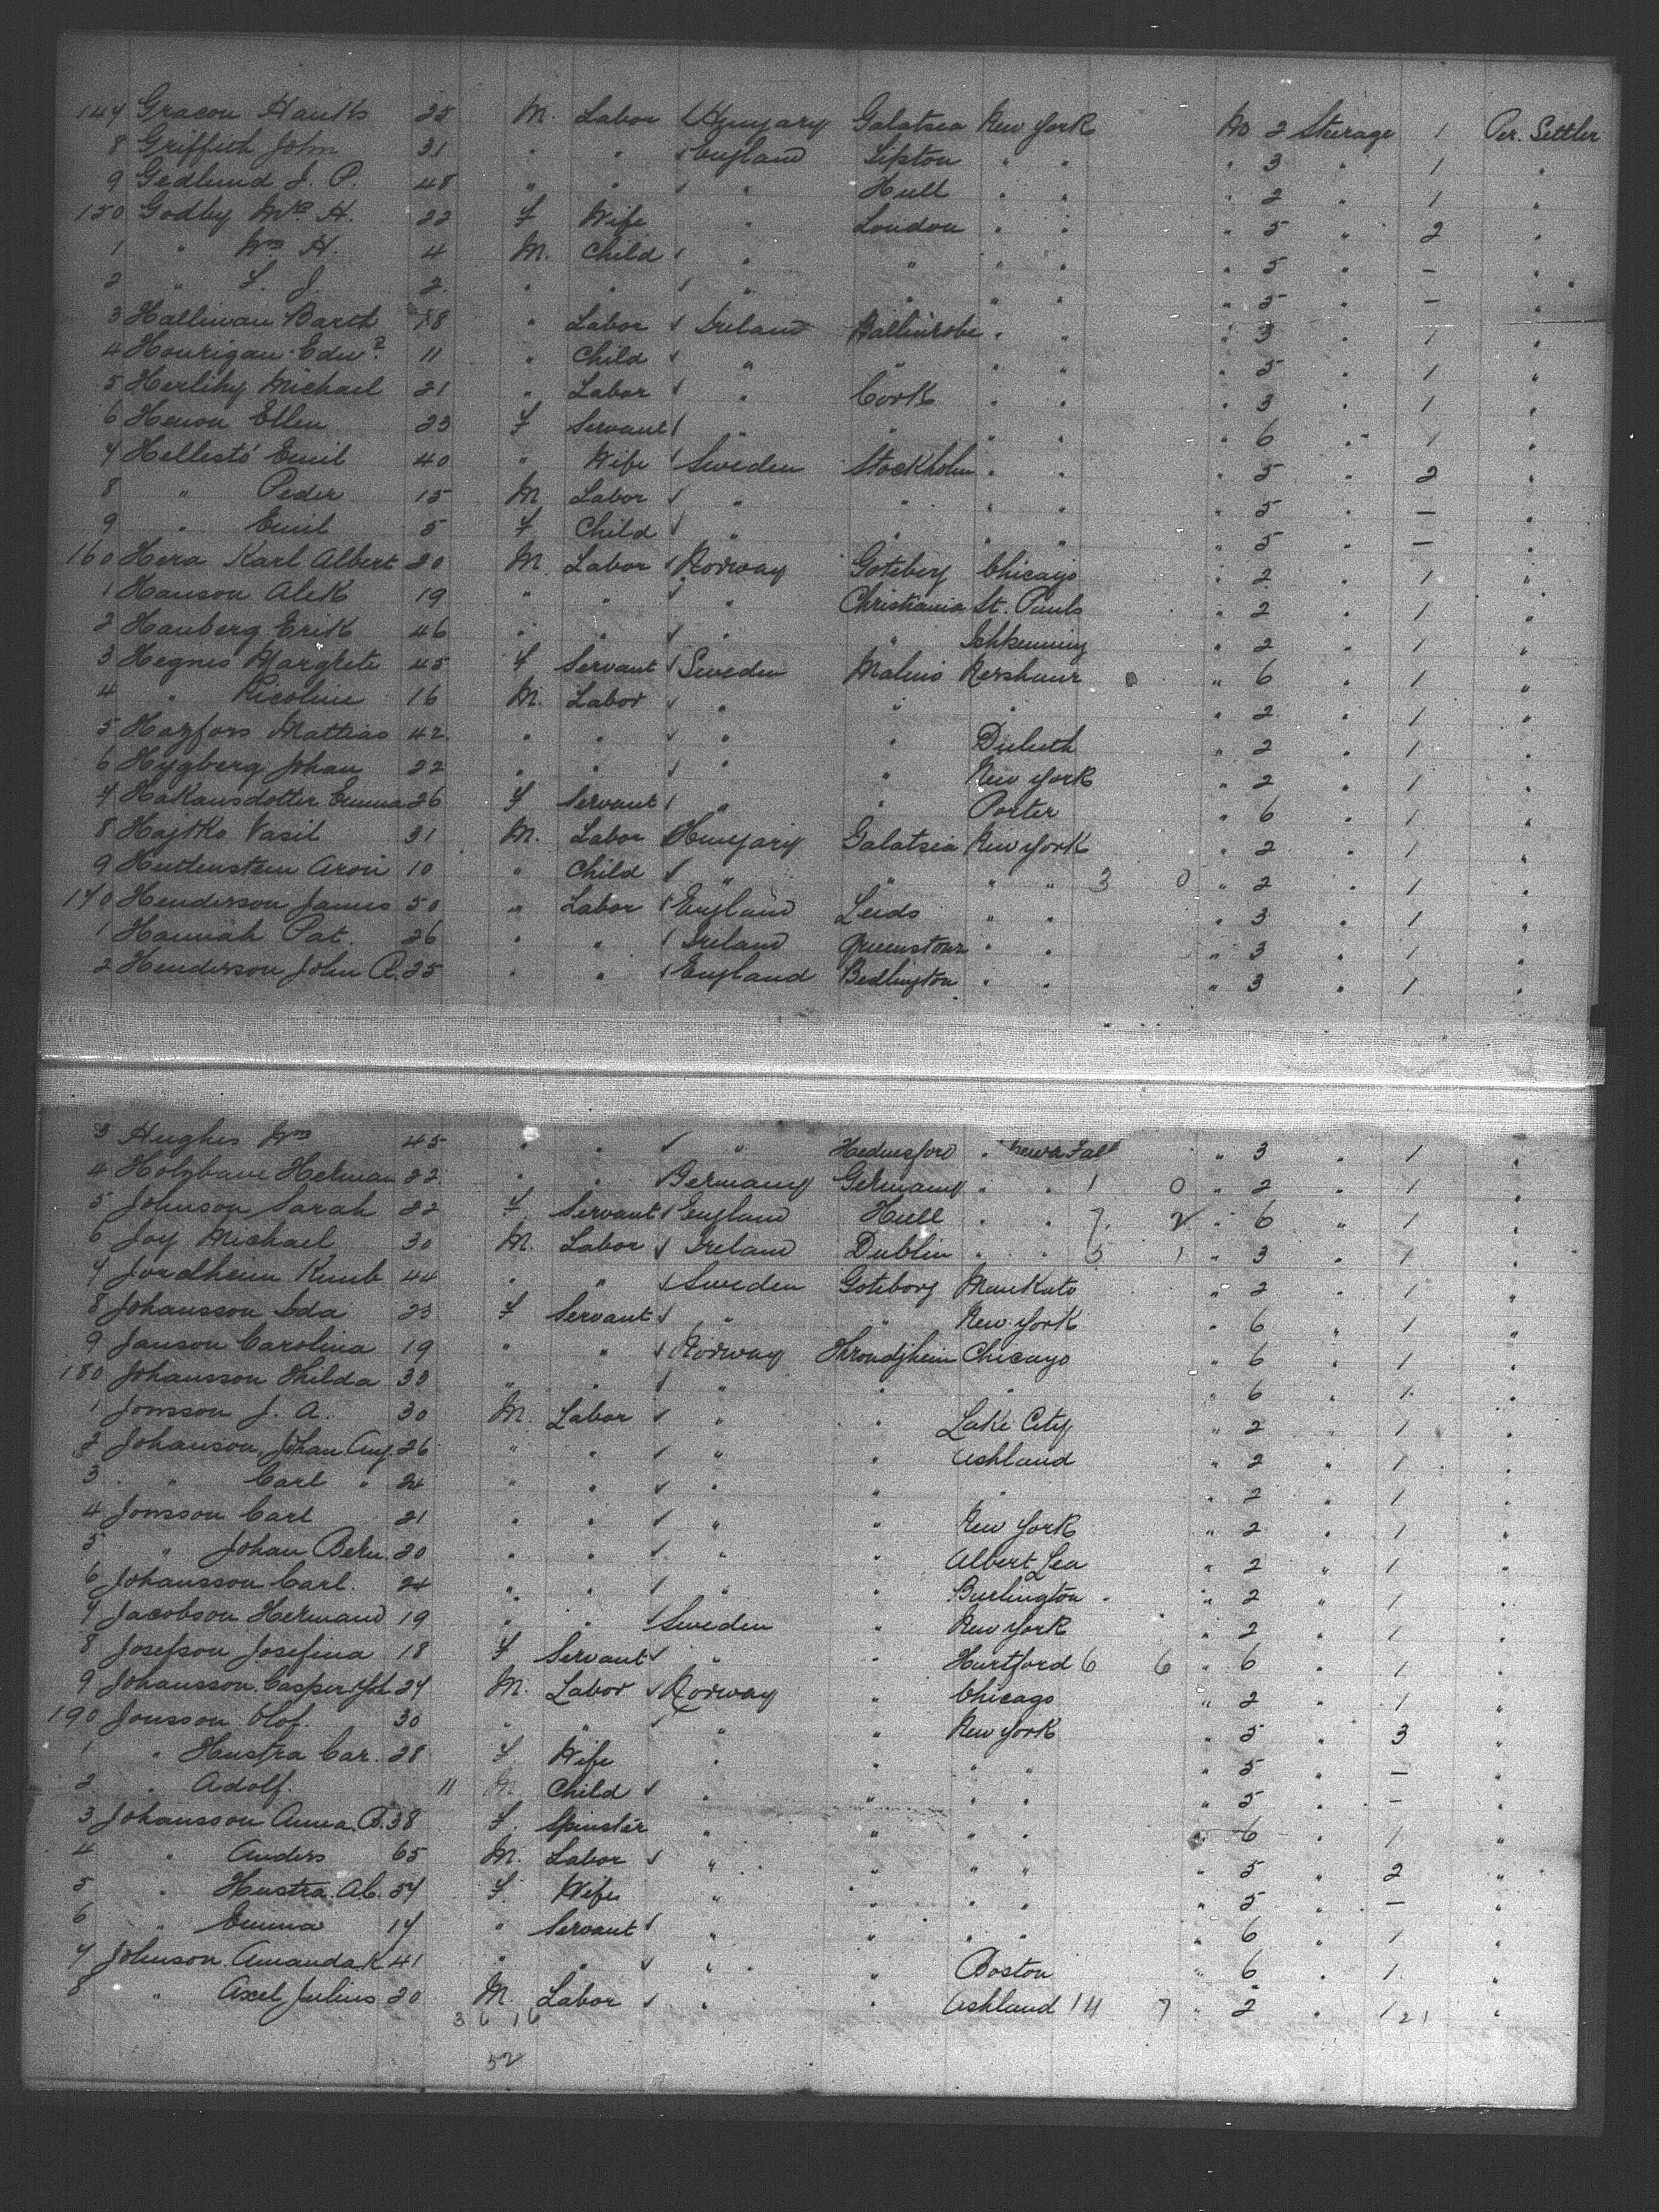 147 Gracon 25 M. Labor Hungary Galatsia New York No 2 Steerage 1 Per. Settler
8 Griffith John 31 " " England Lipton " " " 3 " 1 "
9 Gedlund J. P. 48 " " " Hull " " " 2 " 1 "
150 Godby Mrs H. 22 F Wife " London " " " 5 " 2 "
1 " Wm H. 4 M. Child " " " " " 5 " — "
2 " F. J. 2 " " " " " " " 5 " — "
3 Hallinan Barth " Labor Ireland Ballinrobe " " " 3 " 1 "
4 Hourigan Edwd 11 " Child " " " " " 5 " 1 "
5 Herlihy Michael 21 " Labor " Cork " " " 3 " 1 "
6 Heron Ellen 23 F Servant " " " " " 6 " 1 "
7 Hellestö Emil 40 " Wife Sweden Stockholm " " " 5 " 2 "
8 " Peder 15 M Labor " " " " " 5 " — "
9 " Emil 5 F Child " " " " " 5 " — "
160 Hera Karl Albert 20 M. Labor Norway Goteberg Chicago " 2 " 1 "
1 Hanson Alek 19 " " " Christiania St. Pauls " 2 " 1 "
2 Hauberg Erik 46 " " " " Ishkenning " 2 " 1 "
3 Hegnes Margrete 45 F Servant Sweden Malmö Kershaur " 6 " 1 "
4 " Nicoline 16 M. Labor " " " " 2 " 1 "
5 Hazfors Mattias 42 " " " " Duluth " 2 " 1 "
6 Hygberg Johan 22 " " " " New York " 2 " 1 "
7 Hakansdotter Emma 26 F Servant " " Porter " 6 " 1 "
8 Hajtko Vasil 31 M. Labor Hungary Galatsia New York " 2 " 1 "
9 Huttenstein Aron 10 " Child " " " " 3 0 " 2 " 1 "
170 Henderson James 50 " Labor England Leeds " " " 3 " 1 "
1 Hannah Pat. 26 " " Ireland Queenstown " " " 3 " 1 "
2 Henderson John R. 25 " " England Bedlington " " " 3 " 1 "
3 Hughes Wm 45 " " " Hednesford " " 3 " 1 "
4 Holzbaue Herman 22 " " Germany Germany " " 1 0 " 2 " 1 "
5 Johnson Sarah 22 F. Servant England Hull " " 7 2 " 6 " 1 "
6 Joy Michael 30 M. Labor Ireland Dublin " " 5 1 " 3 " 1 "
7 Jordheim Knub 44 " " Sweden Goteborg Mankato " 2 " 1 "
8 Johansson Ida 23 F Servant " " New York " 6 " 1 "
9 Janson Carolina 19 " " Norway Throndjhem Chicago " 6 " 1 "
180 Johansson Thilda 33 " " " " " " 6 " 1 "
1 Jonsson J. A. 30 M. Labor " " Lake City " 2 " 1 "
2 Johanson, Johan Aug. 26 " " " " Ashland " 2 " 1 "
3 " Carl " 24 " " " " " " 2 " 1 "
4 Jonsson Carl 21 " " " " New York " 2 " 1 "
5 " Johan Bern. 20 " " " " Albert Lea " 2 " 1 "
6 Johansson Carl. 24 " " " " Burlington " 2 " 1 "
7 Jacobson Hermand 19 " " Sweden " New York " 2 " 1 "
8 Josefson Josefina 18 F Servant " " Hartford 6 6 " 6 " 1 "
9 Johansson Casper 24 M. Labor Norway " Chicago " 2 " 1 "
190 Jonsson Olof. 30 " " " " New York " 5 " 3 "
1 " Hustra Car. 28 F. Wife " " " " " 5 " — "
2 " Adolf. 11 M. Child " " " " " 5 " — "
3 Johansson Anna B. 38 F. Spinster " " " " " 6 " 1 "
4 " Anders 65 M. Labor " " " " " 5 " 2 "
5 " Hustra Ab. 57 F. Wife " " " " " 5 " — "
6 " Emma 17 " Servant " " " " " 6 " 1 "
7 Johnson Amanda K 41 " " " " Boston " 6 " 1 "
8 " Axel Julius 20 M. Labor " " Ashland 14 7 " 2 " 1 21 "
36 16
52